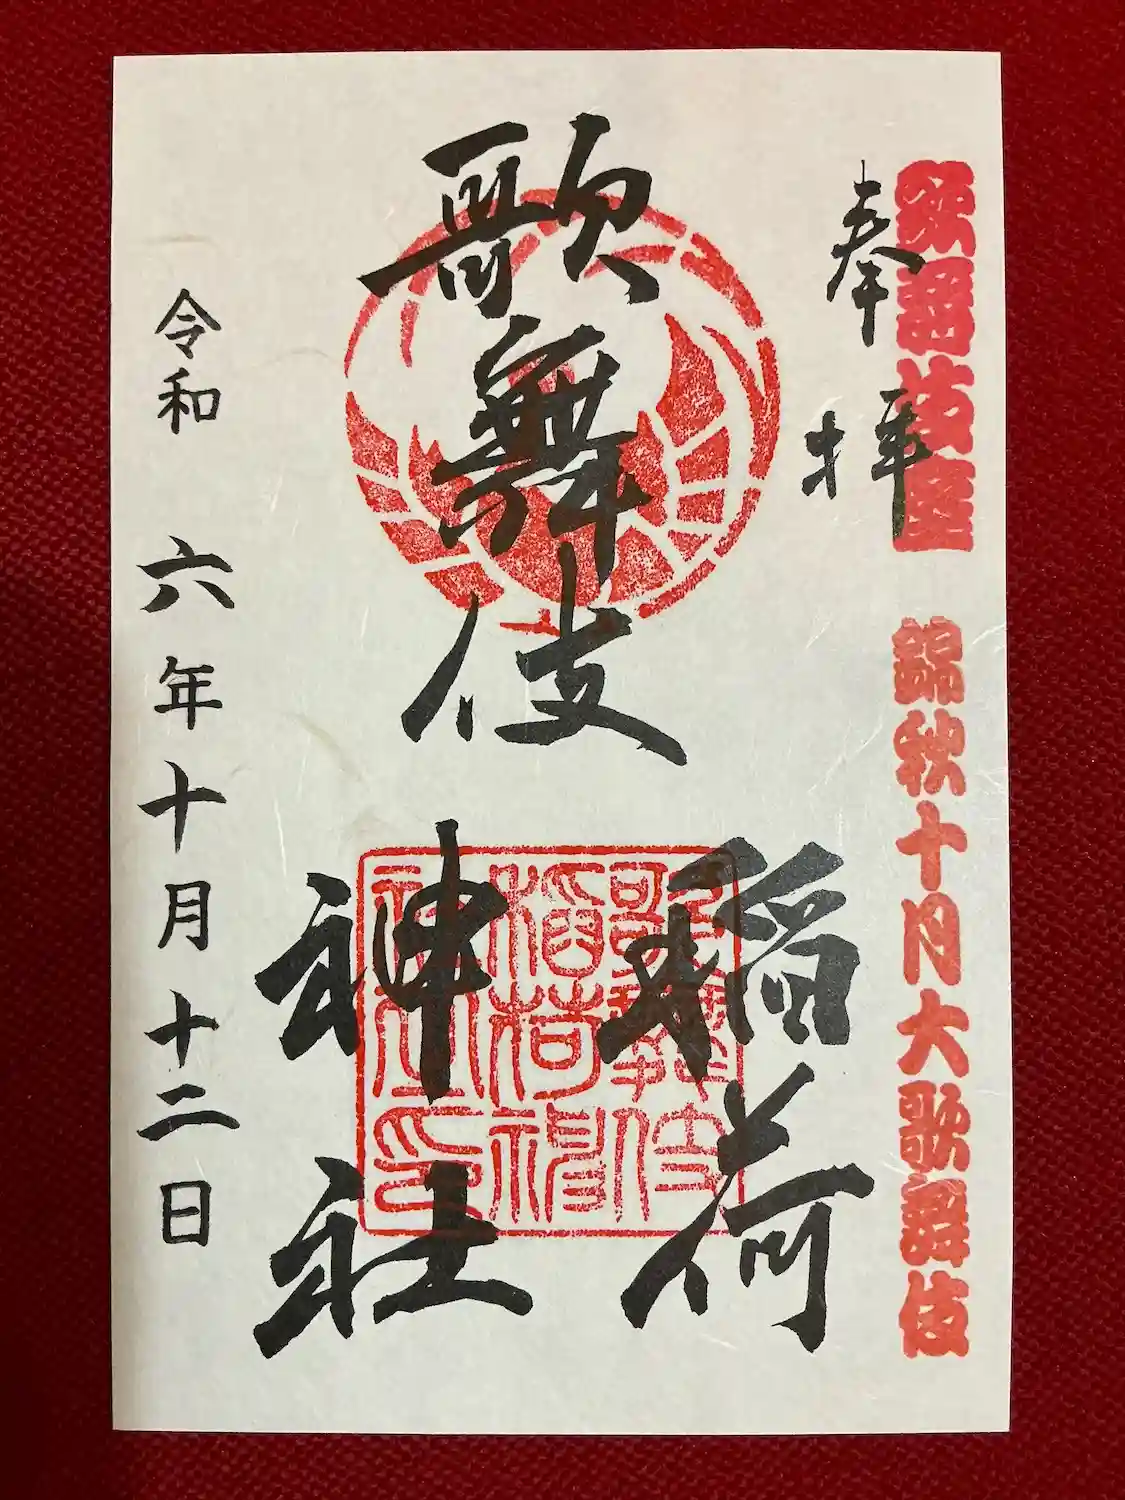 歌舞伎座
錦秋十月大歌舞伎
奉拝
歌舞伎
稲荷
神社
歌舞伎
稲荷神
社之印
令和 六年十月十二日